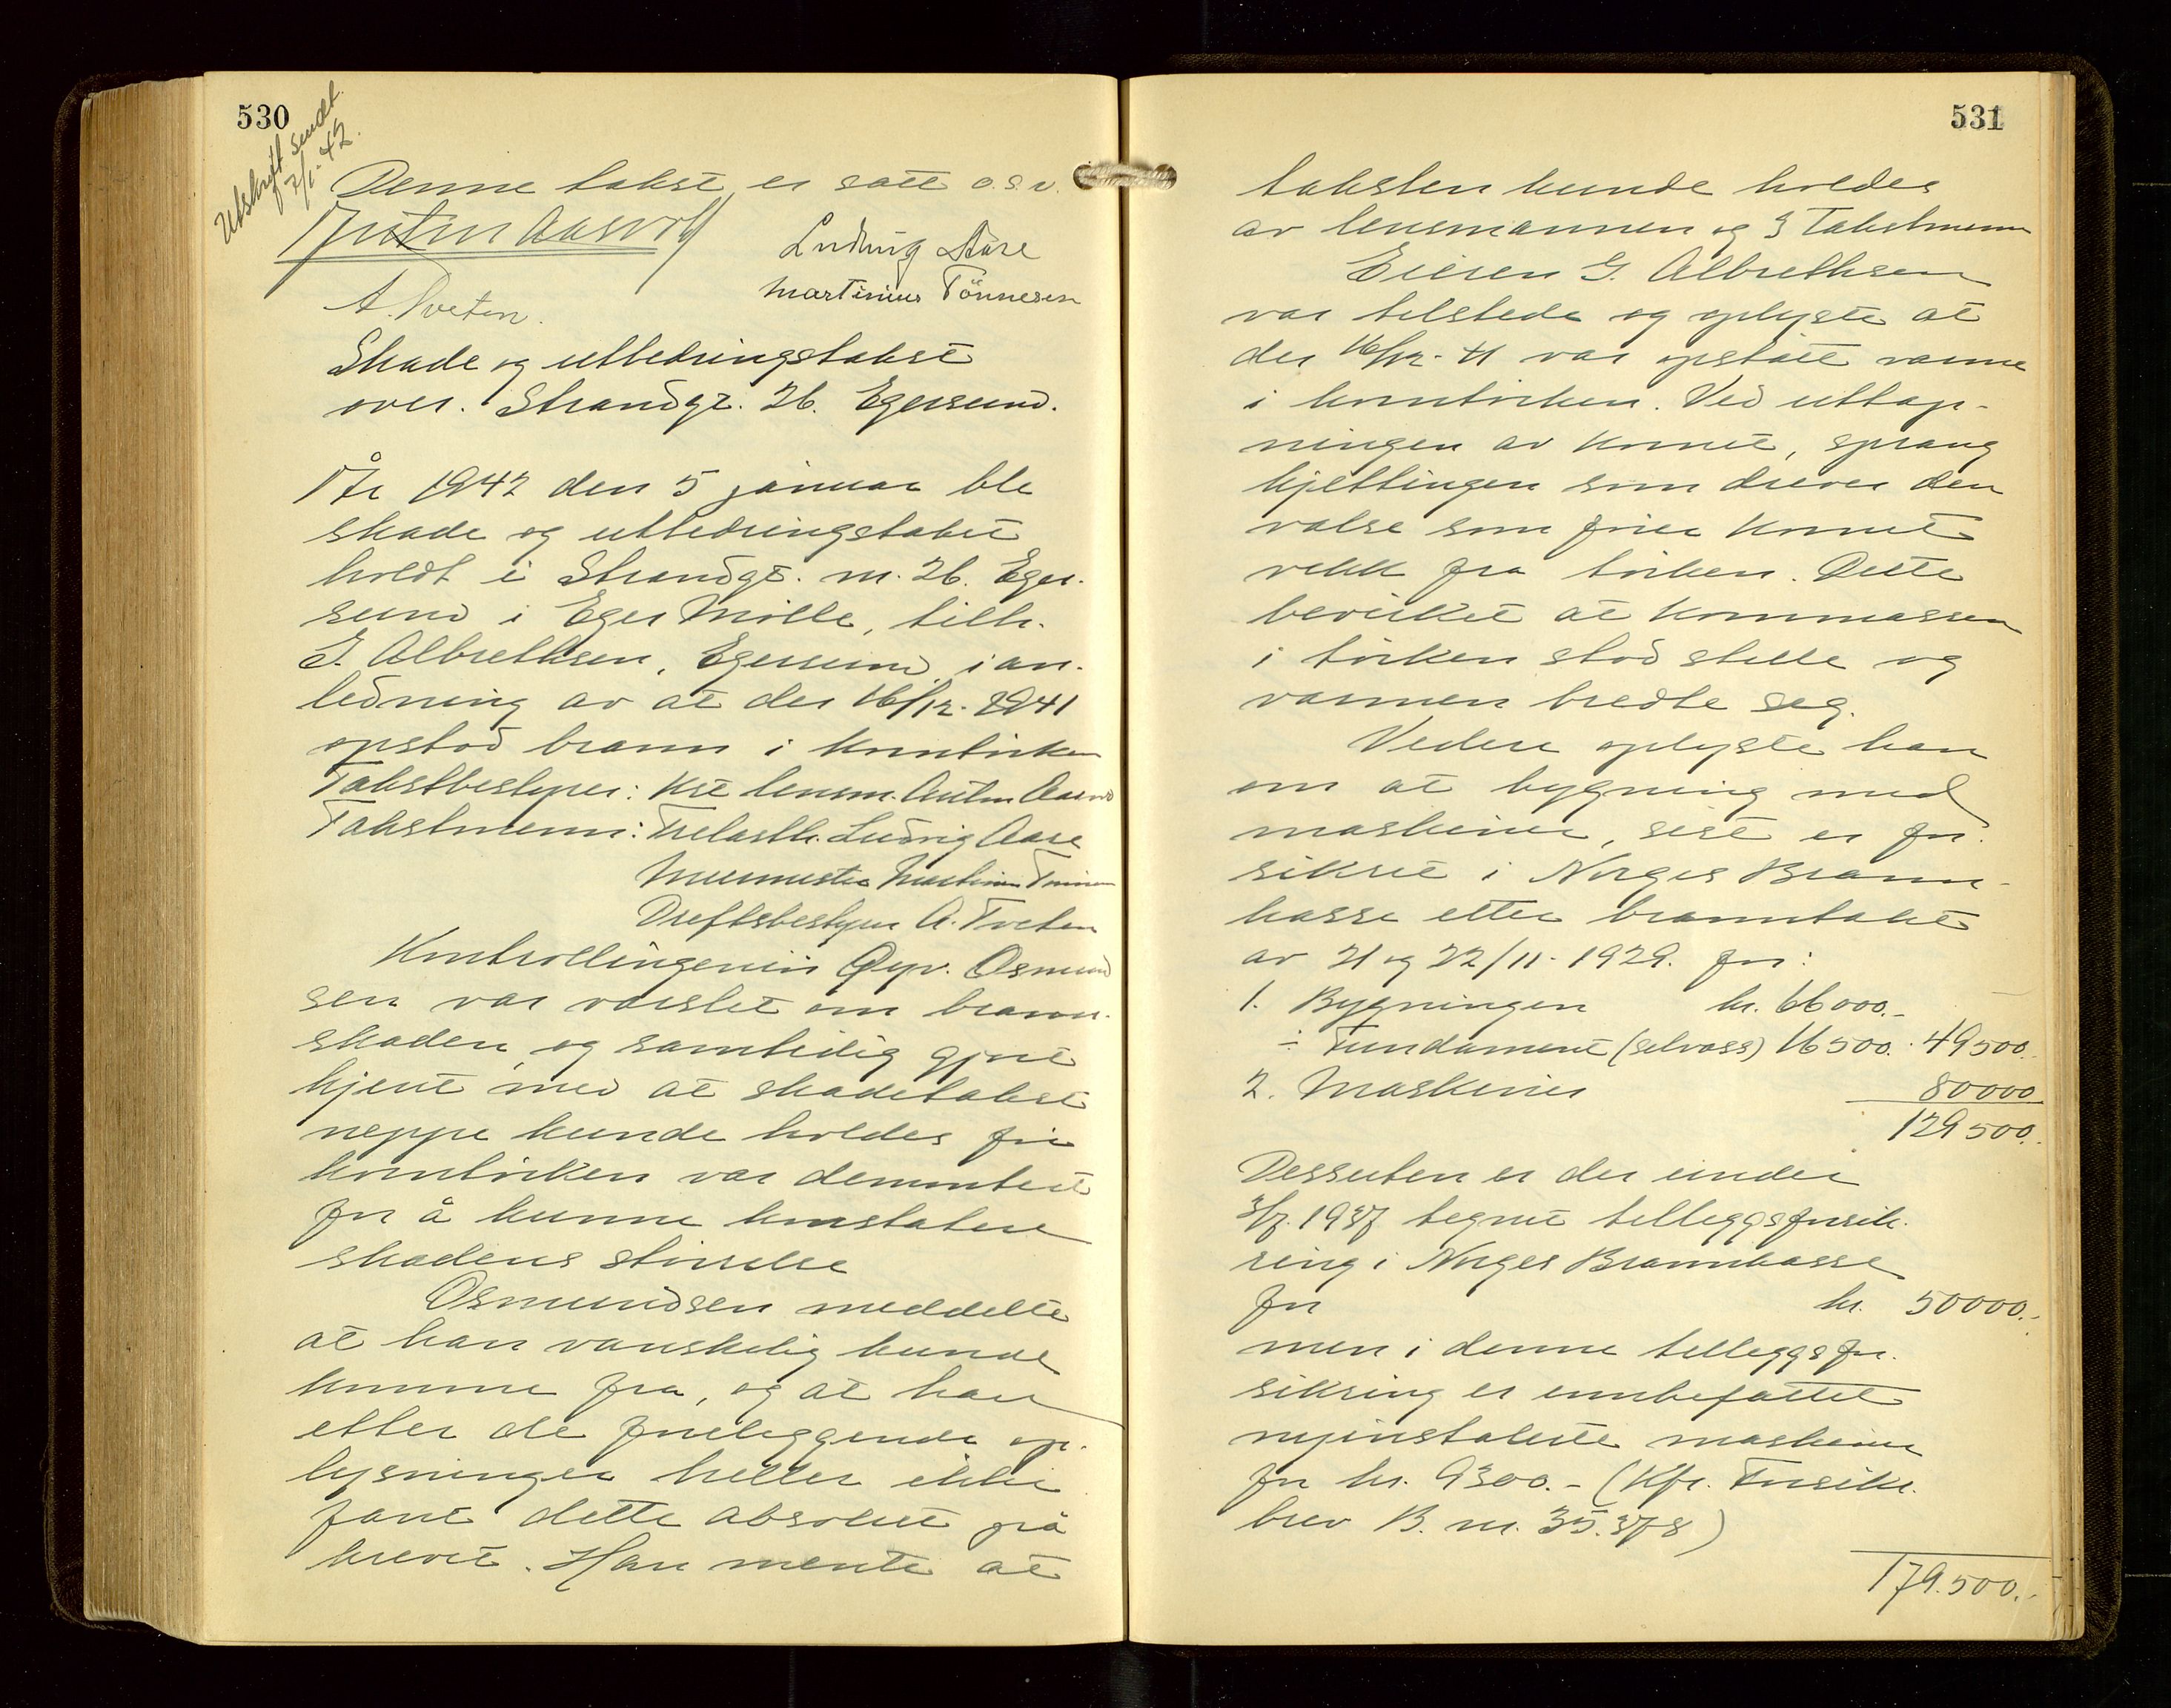 530
Utskrift sendt
7/1-42.
Denne takst er satt o.s.v.
Ludvig Aase
Martinius Tönnesen
A. Tveten.
Skade og utbedringstakst
over. Strandgt. 26. Egersund.
År 1942 den 5 januar ble
skade og utbedringstakst
holdt i Strandgt. nr. 26. Eger-
sund i Eger Mölle, tilh.
G. Albrethsen, Egersund i an-
ledning av at der 16/12-1941
opstod brann i korntörken
Takstbestyrer: Kst lensm. Aasvold
Takstmenn: Trelasth. Ludvig Aase
Murmester Martinius Tönnesen
Driftsbestyrer A. Tveten
Kontrollingeniör Osmund
sen var varslet om brann-
skaden, og samtidig gjort
kjent med at skadetakst
neppe kunde holdes för
korntörken var demontert
for å kunne konstatere
skadens störrelse
Osmundsen meddelte
at han vanskelig kunde
komme fra, og at han
etter de foreliggende op-
lysninger heller ikke
fant dette absolutt på
krevet. Han mente at
531
taksten kunde holdes
av lensmannen og 3 Takstmenn
Eieren G. Albrethsen
var tilstede og oplyste at
der 16/12-41 var opstått varme
i korntörken. Ved uttap-
ningen av kornet, sprang
kjettingen som drever den
valse som förer kornet
vekk fra törken. Dette
bevirket at kornmassen
i törken stod stille og
varmen bredte seg.
Videre oplyste han
om at bygning med
maskiner, sist er for-
sikret i Norges Brann-
kasse etter branntakst
av 21 og 22/11-1929. for:
1. Bygningen kr. 66000.-
÷ Fundament (selvass) 16500.- 49500.-
2. Maskiner 80000
129500.-
Dessuten er der under
3/7. 1937 tegnet tilleggsforsik-
ring i Norges Brannkasse
for kr. 50000.-
men i denne tilleggsfor-
sikring er innbefattet
nyinstallerte maskiner
for kr. 9300.- (Kfr. Forsikr.
brev B. nr. 35.378)
179.500.-